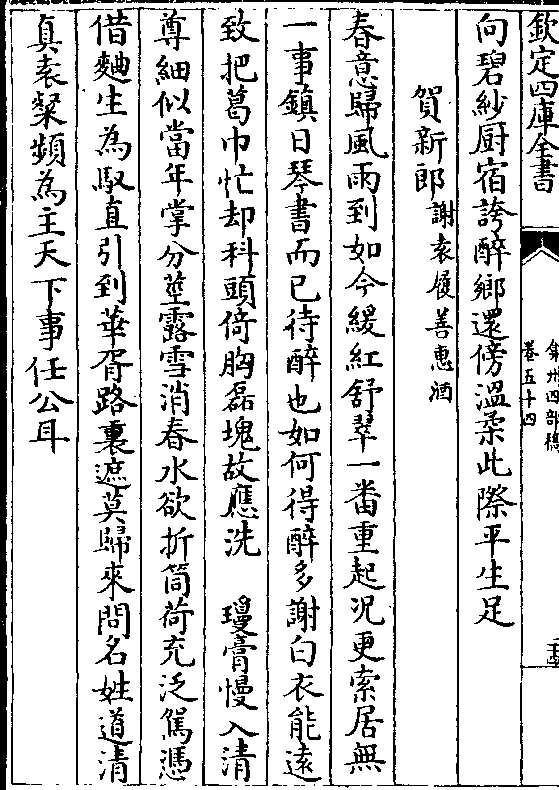 欽定四庫全書
弇州四部稿
卷五十四
向碧紗厨宿誇醉鄉還傍溫柔此際平生足
賀新郎謝袁履善惠酒
春意歸風雨到如今緩紅舒翠一番重起况更索居無
一事鎮日琴書而已待醉也如何得醉多謝白衣能遠
致把葛巾忙却科頭倚胸磊塊故應洗　瓊膏慢入清
尊細似當年掌分莖露雪消春水欲折筒荷充泛駕憑
借麯生為馭直引到華胥路裏遮莫歸來問名姓道清
真袁粲頻為主天下事任公耳